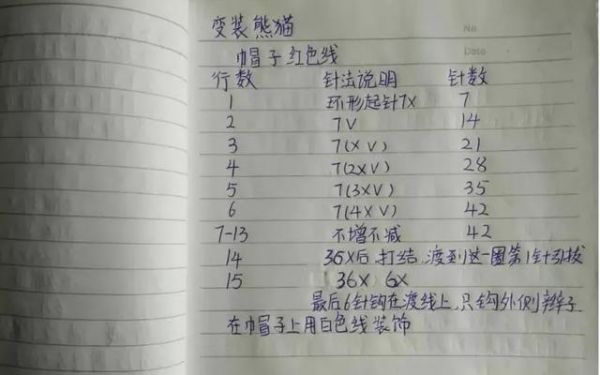 变装熊猫
No
Date
帽子红色线
行数 针法说明 针数
1 环形起针7X 7
2 7V 14
3 7(XV) 21
4 7(2XV) 28
5 7(3XV) 35
6 7(4XV) 42
7-13 不增不减 42
14 36X后,打结,渡到这一圈第1针引拔
15 36X, 6X
最后6针钩在渡线上,只钩外侧辫子
在帽子上用白色线装饰